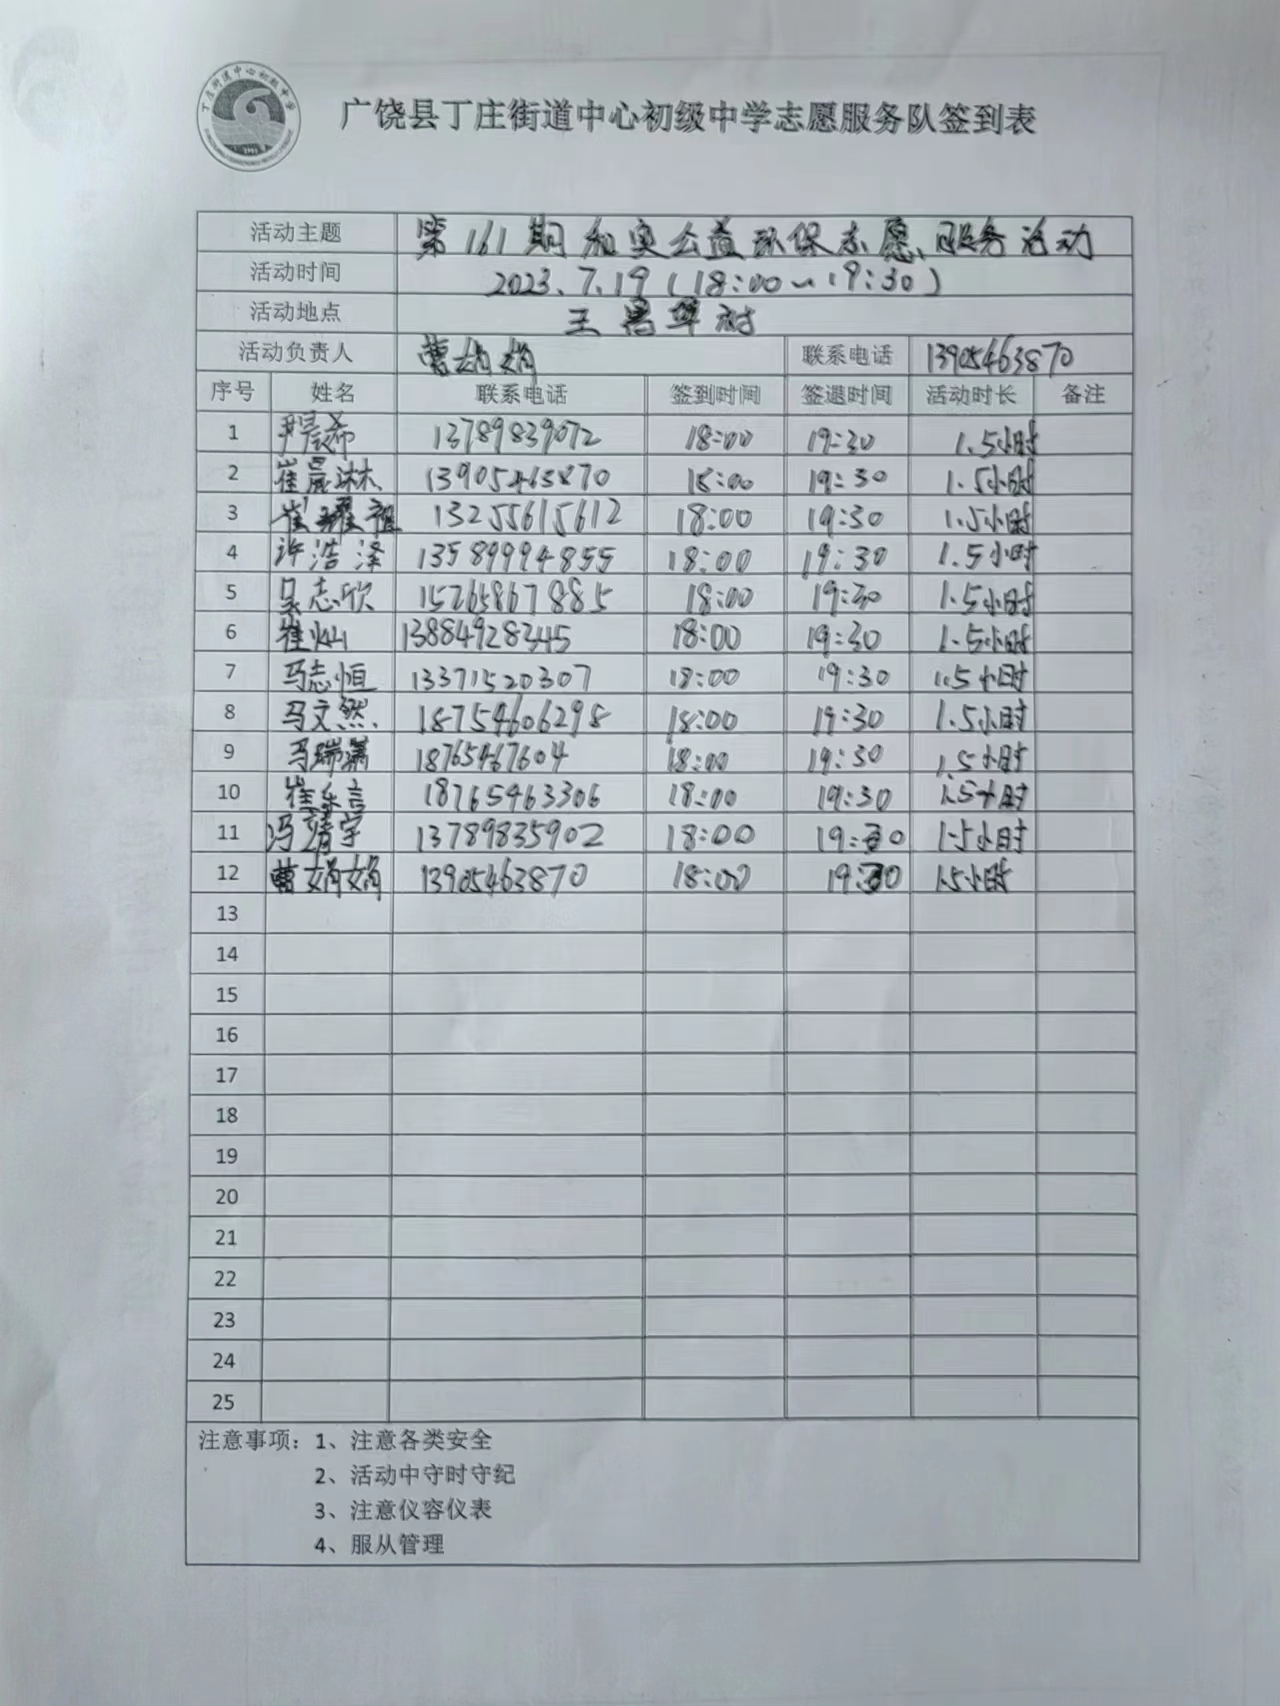 丁庄街道中心初级中学
广饶县丁庄街道中心初级中学志愿服务队签到表
活动主题 第161期和奥公益环保志愿服务活动
活动时间 2023.7.19(18:00~19:30)
活动地点 王署埠村
活动负责人 曹娟娟 联系电话 13905463870
序号 姓名 联系电话 签到时间 签退时间 活动时长 备注
1 尹晨希 13789839072 18:00 19:30 1.5小时
2 崔晨淋 13905463870 18:00 19:30 1.5小时
3 崔耀祖 13255615612 18:00 19:30 1.5小时
4 许浩泽 13589994855 18:00 19:30 1.5小时
5 吴志欣 15265867885 18:00 19:30 1.5小时
6 崔灿 13884928345 18:00 19:30 1.5小时
7 马志恒 13371520307 18:00 19:30 1.5小时
8 马文然 18754606298 18:00 19:30 1.5小时
9 马瑞萧 18765467604 18:00 19:30 1.5小时
10 崔乐言 18765463306 18:00 19:30 1.5小时
11 冯靖宇 13789835902 18:00 19:30 1.5小时
12 曹娟娟 13905463870 18:00 19:30 1.5小时
13
14
15
16
17
18
19
20
21
22
23
24
25
注意事项：1、注意各类安全
2、活动中守时守纪
3、注意仪容仪表
4、服从管理